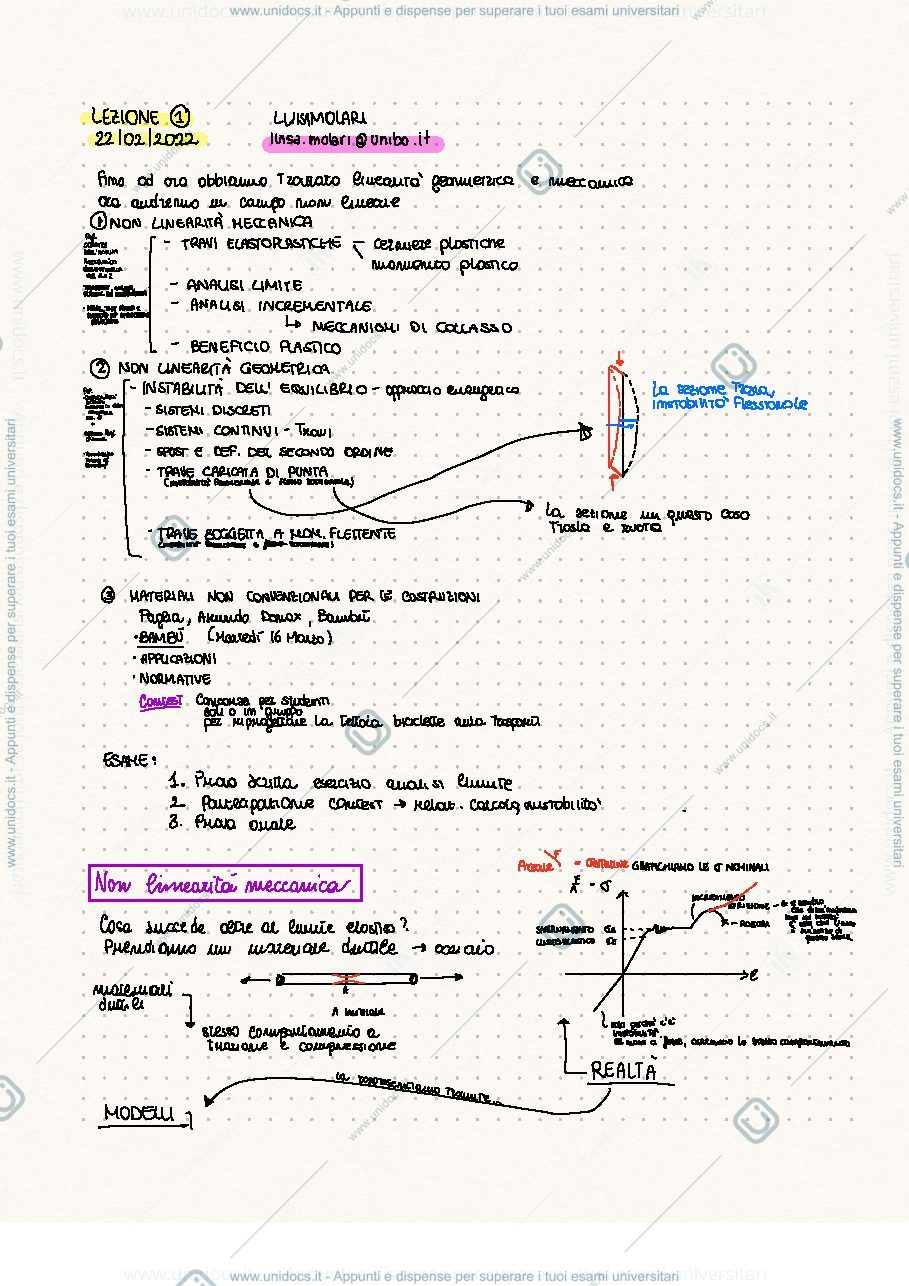 www.unidocs.it - Appunti e dispense per superare i tuoi esami universitari
LEZIONE 1
22/02/2022
LUISA MOLARI
luisa.molari@unibo.it
Fino ad ora abbiamo trattato linearità geometrica e meccanica
ora andremo in campo non lineare
① NON LINEARITÀ MECCANICA
- TRAVI ELASTOPLASTICHE
cerniere plastiche
momento plastico
- ANALISI LIMITE
- ANALISI INCREMENTALE
↳ MECCANISMI DI COLLASSO
- BENEFICIO PLASTICO
② NON LINEARITÀ GEOMETRICA
- INSTABILITÀ DELL'EQUILIBRIO - approccio energetico
- SISTEMI DISCRETI
- SISTEMI CONTINUI - Travi
- SPOST E DEF. DEL SECONDO ORDINE
- TRAVE CARICATA DI PUNTA
La sezione trasla,
instabilità flessionale
La sezione in questo caso
trasla e ruota
- TRAVE SOGGETTA A MOM. FLETTENTE
③ MATERIALI NON CONVENZIONALI PER LE COSTRUZIONI
Paglia, Arundo Donax, Bambù
· BAMBÙ (Martedì 16 Marzo)
· APPLICAZIONI
· NORMATIVE
Contest Concorso per studenti
soli o in gruppo
per riprogettare la tettoia biciclette aula trasporti
ESAME:
1. Prova scritta esercizio analisi limite
2. Partecipazione CONTEST → relaz. calcolo, instabilità
3. Prova orale
Non linearità meccanica
Cosa succede oltre al limite elastico?
Prendiamo un materiale duttile → acciaio
materiali
duttili
A iniziale
stesso comportamento a
trazione e compressione
GRAFICHIAMO LE σ NOMINALI
F/A = σ
SNERVAMENTO
INCRUDIMENTO
STRIZIONE
ROTTURA
ε
REALTÀ
la rappresentiamo tramite...
MODELLI
www.unidocs.it - Appunti e dispense per superare i tuoi esami universitari